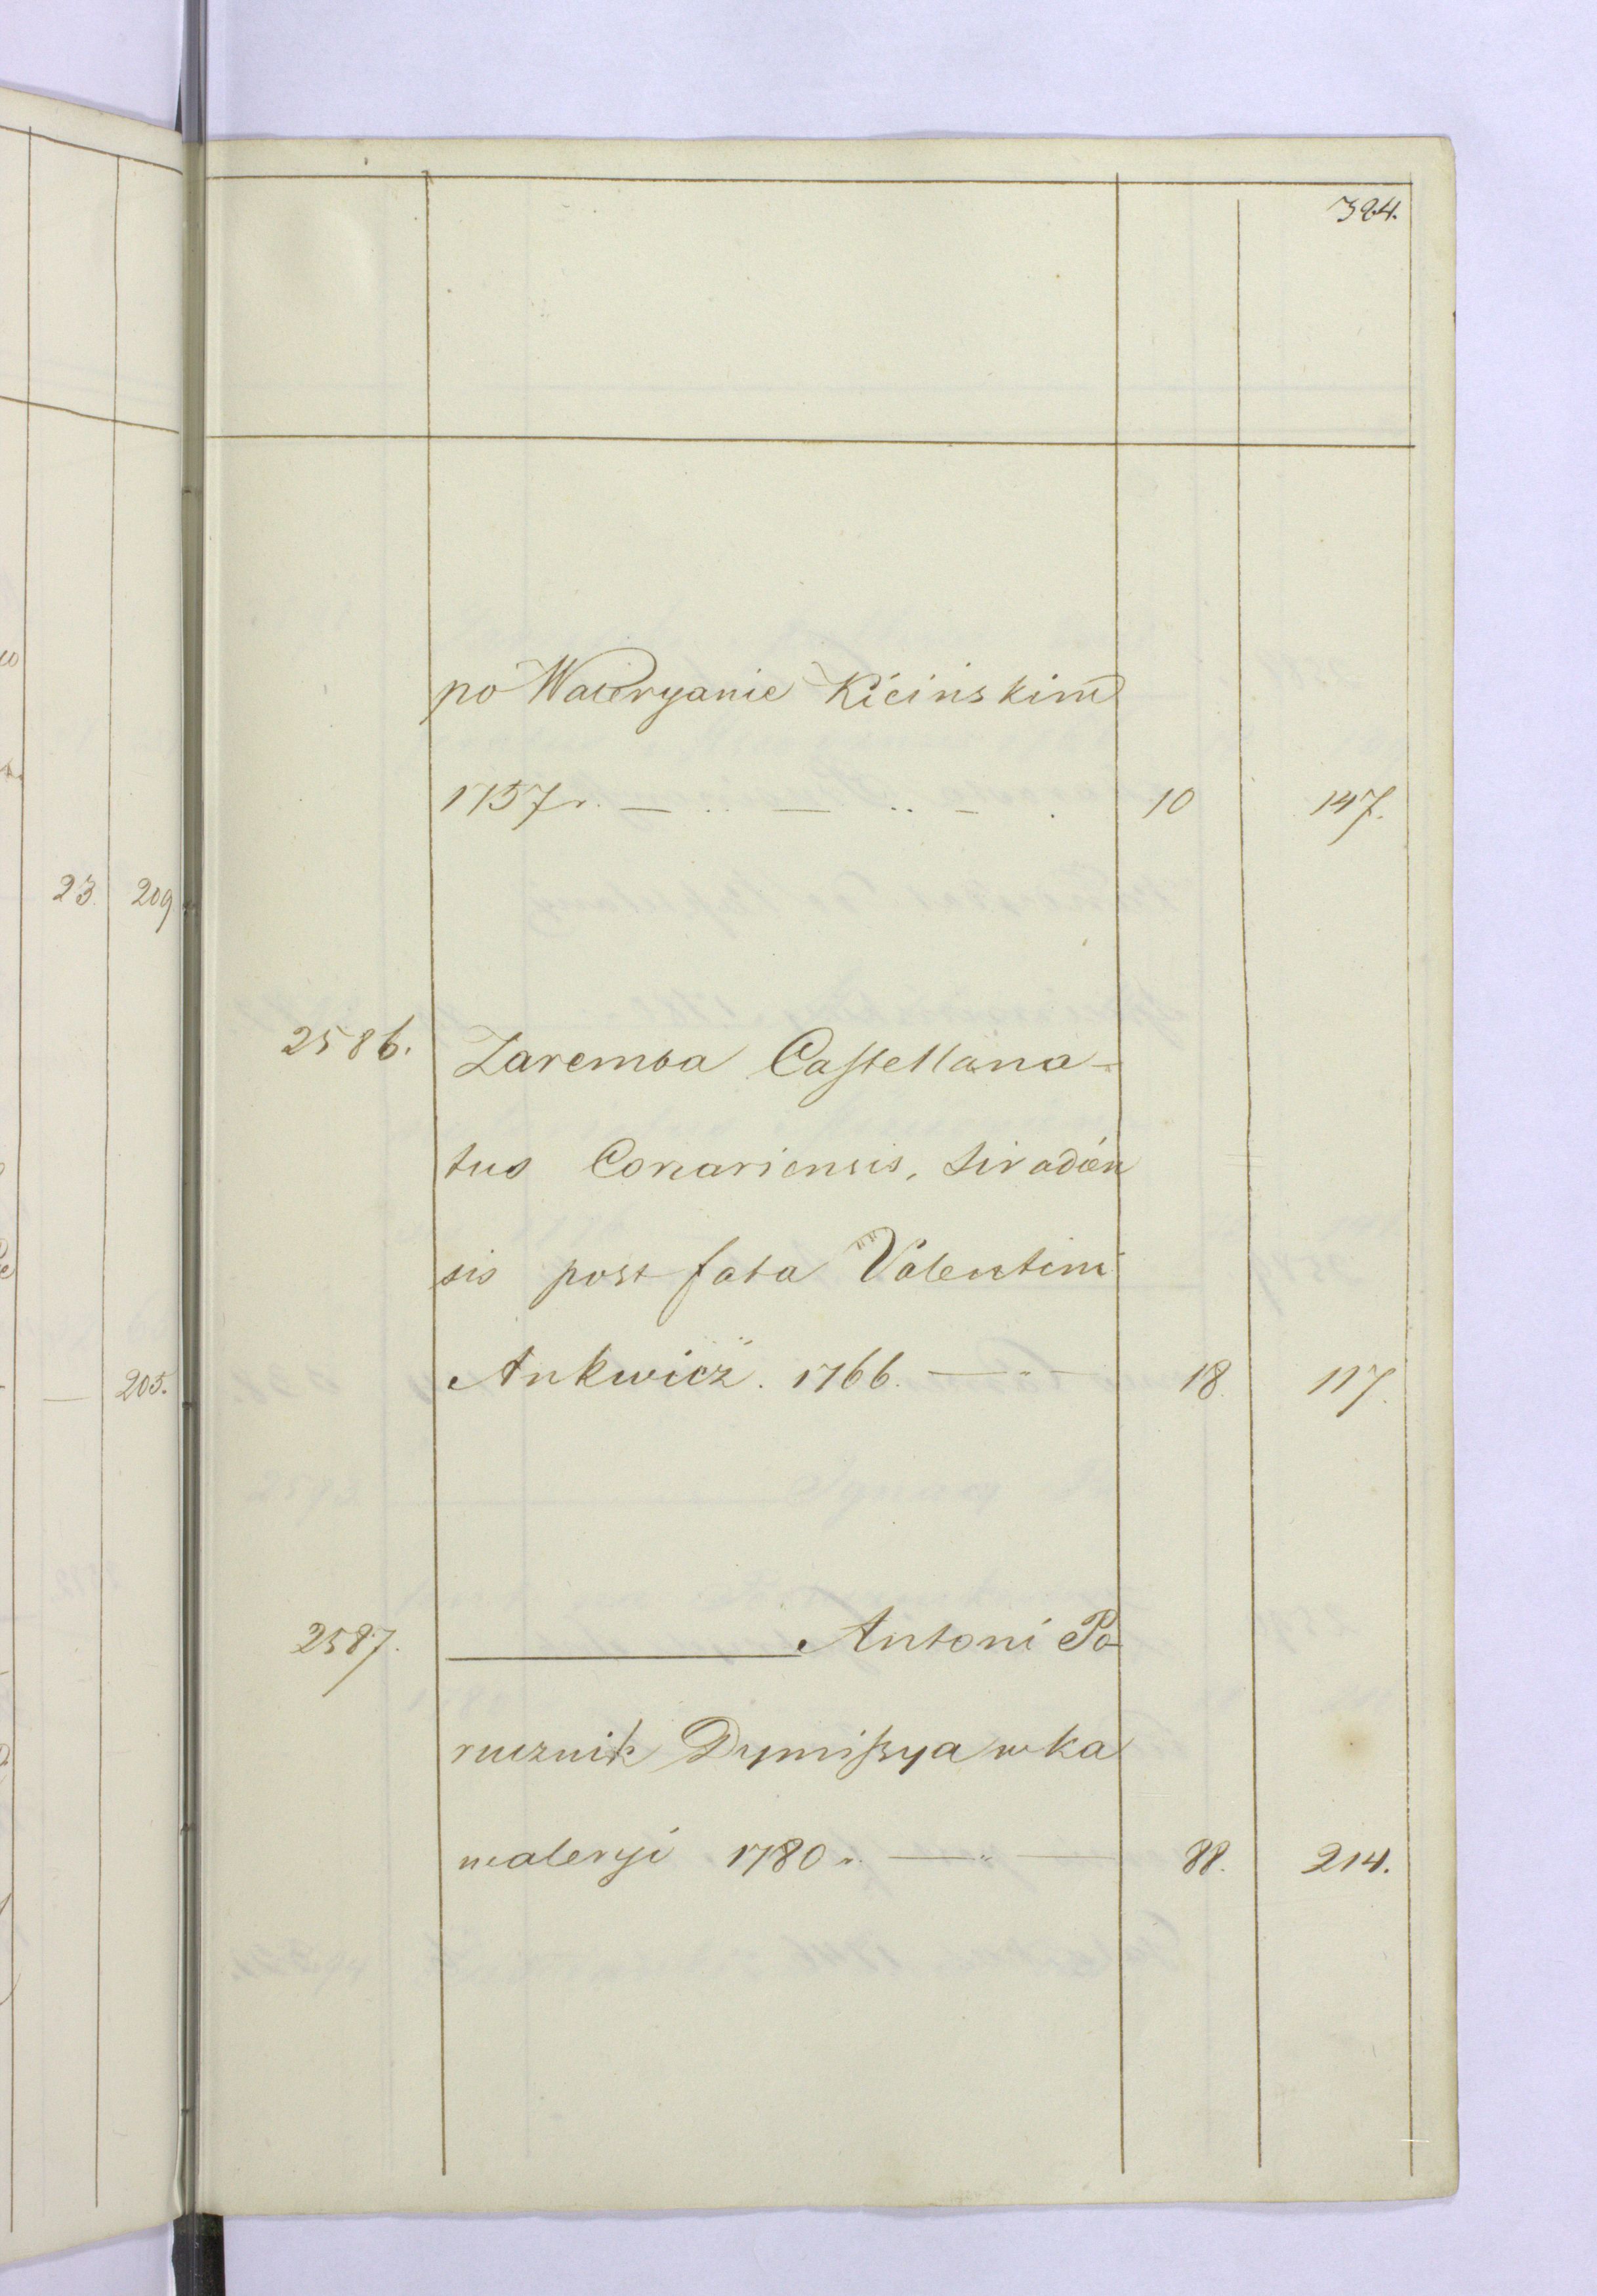 324.
po Waleryanie Kicinskim
1757 r. — .. — .. — . 10 147.
23. 209
2586. Zaremba Castellana-
tus Conariensis, Siradien
sis post fata Valentini
Ankwicz. 1766. — " — 18. 117.
— 205.
2587. ——— Antoni Po-
rucznik Dymissya w ka
waleryi 1780 r. — " — 88. 214.